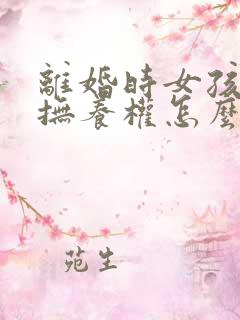 離婚時女孩
撫養權怎麼
苑生